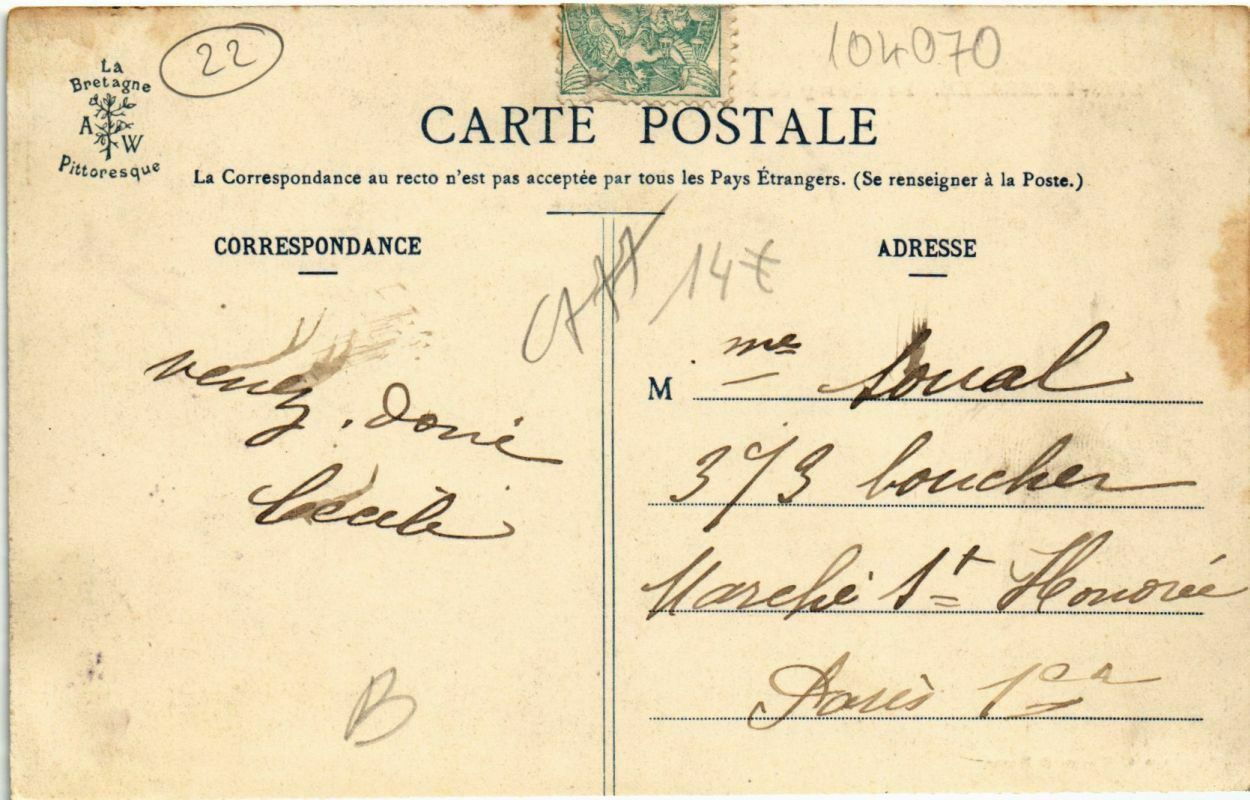 La
Bretagne
A W
Pittoresque
22
104070
CARTE POSTALE
La Correspondance au recto n'est pas acceptée par tous les Pays Étrangers. (Se renseigner à la Poste.)
CORRESPONDANCE
venez. donc
Cécile
B
147
ADRESSE
M me Soual
373 boucher
Marché St Honorée
Paris 1er